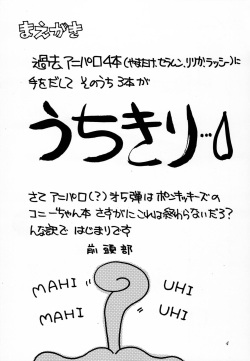 まえがき
過去アニパロ4本(やまだけ、セラムン、リリカ、ラッシー)に
手をだして そのうち3本が
うちきり…
さて アニパロ(?)オ5弾は ポンキッキーズの
コニーちゃん本 さすがに これは終わらないだろ?
んな訳で はじまりです
前頭部
MAHI
UHI
MAHI
UHI